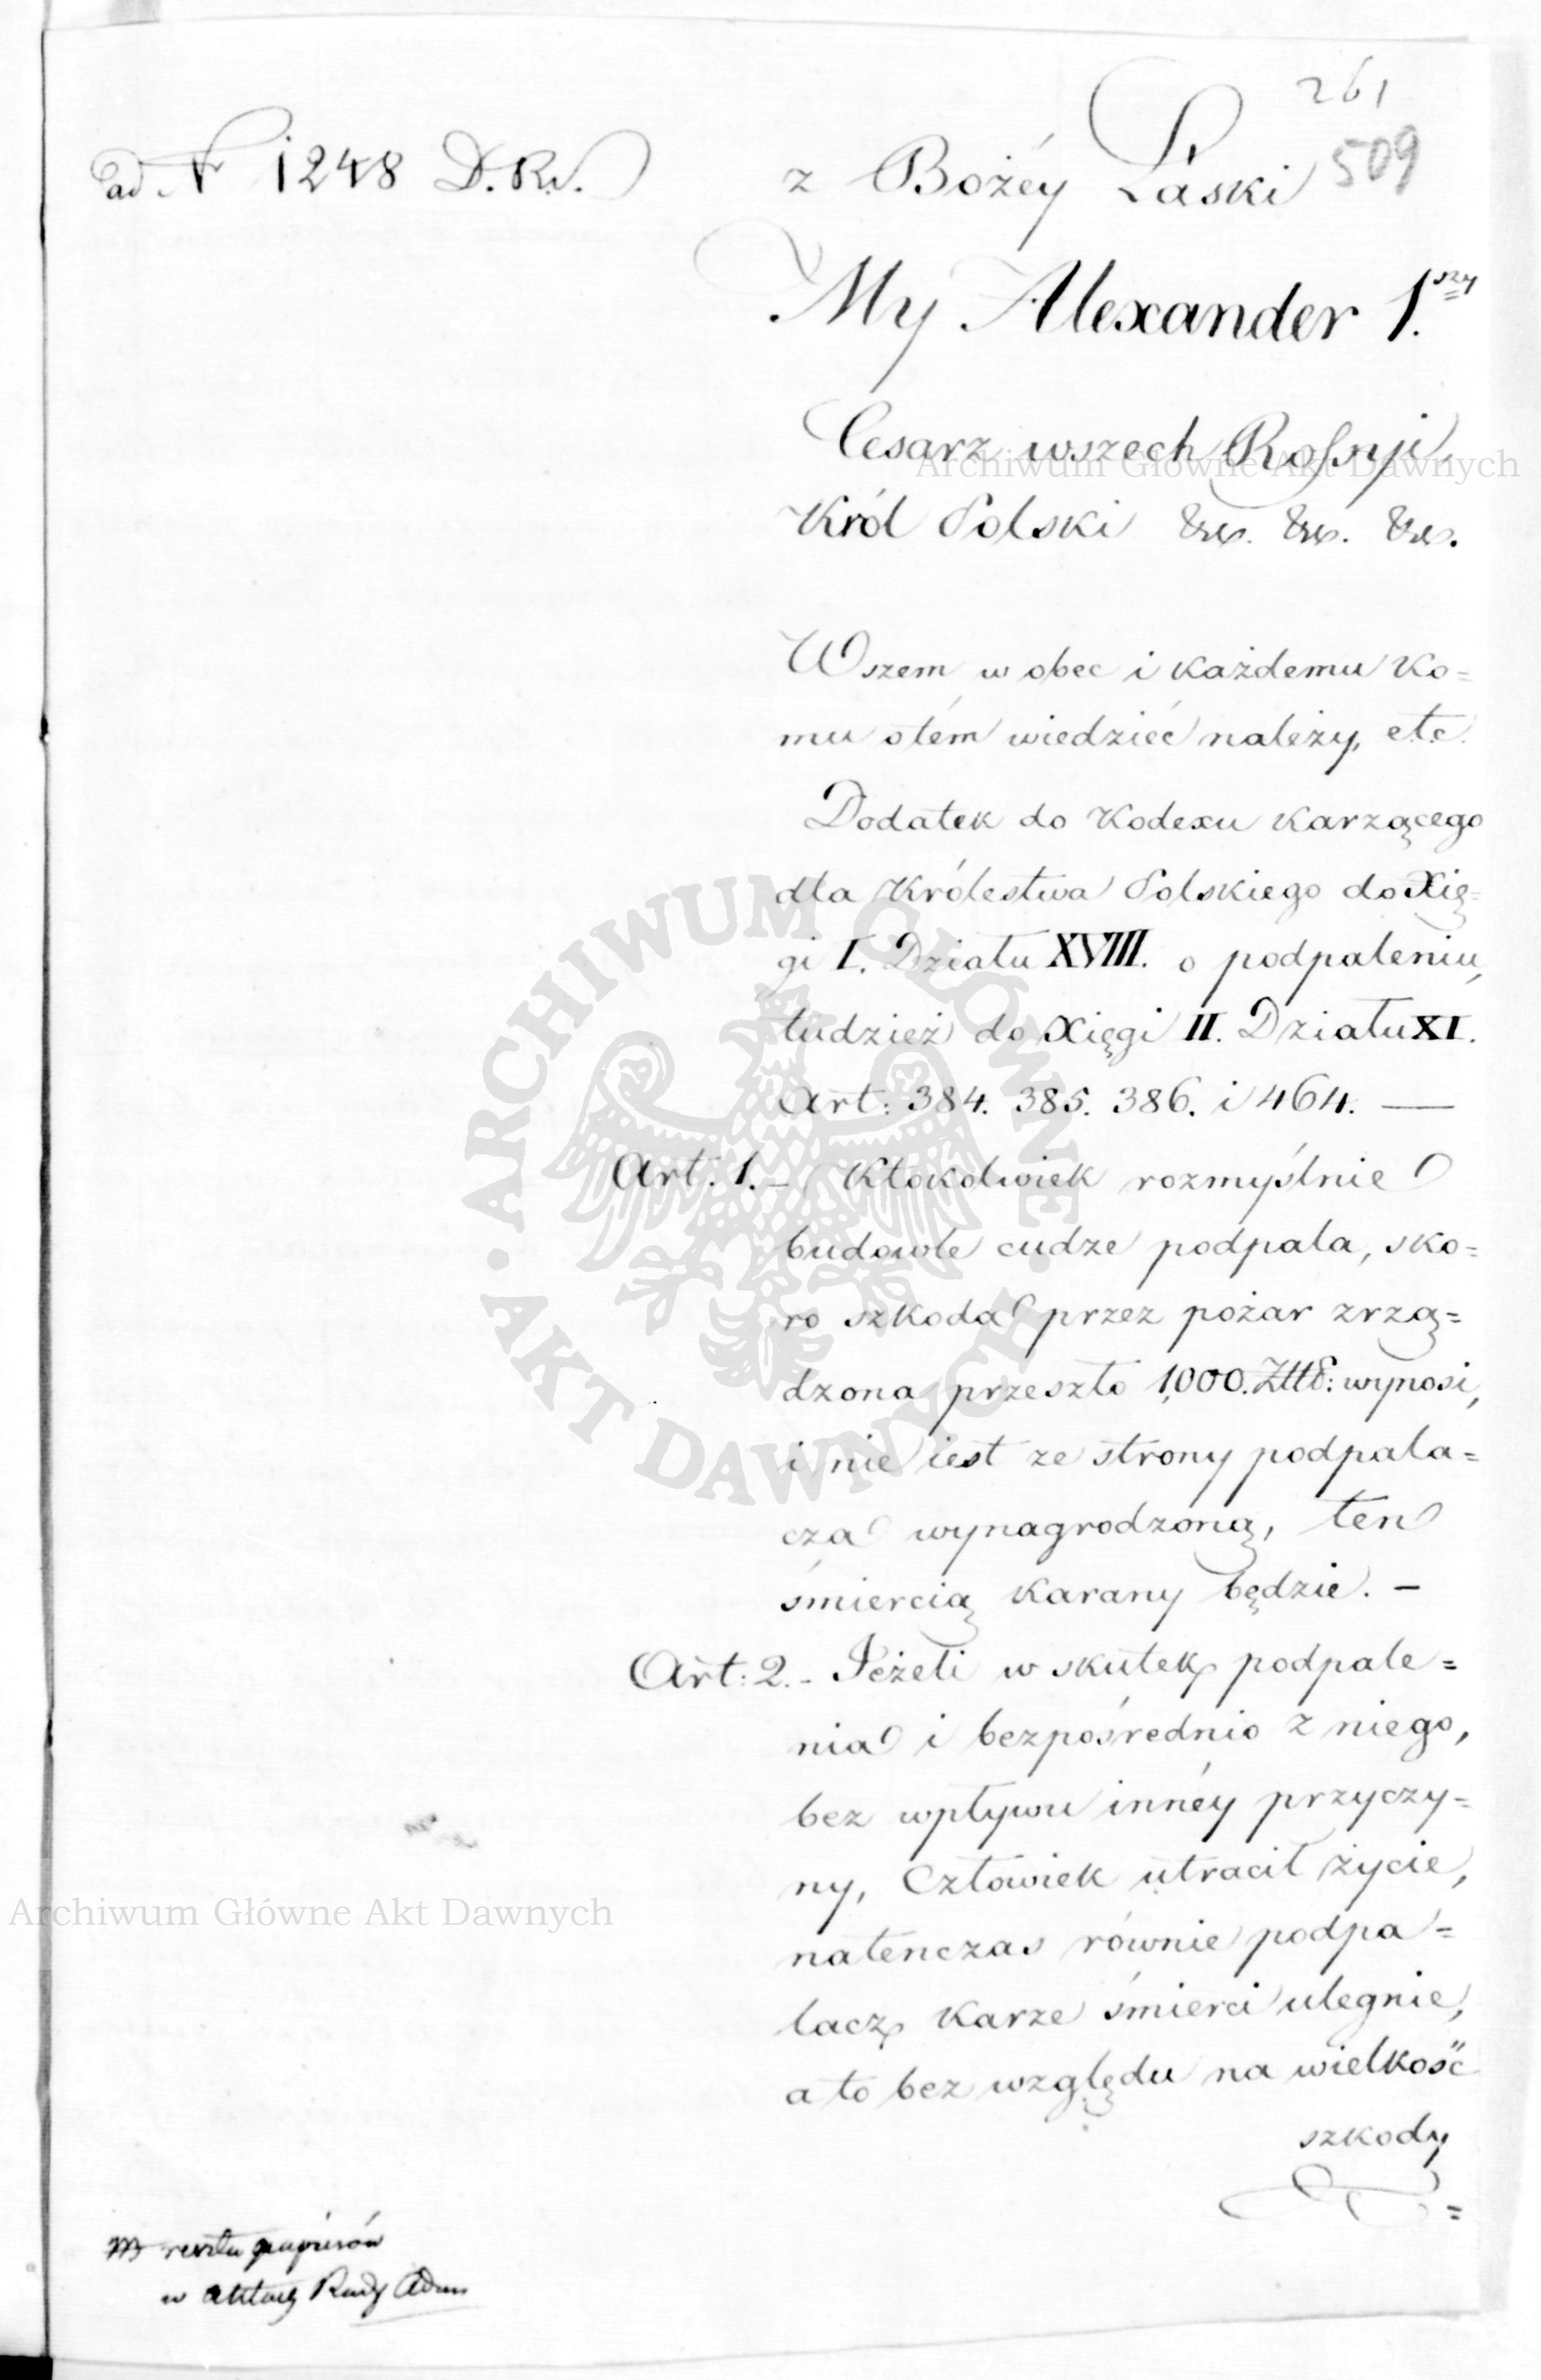 261
509
ad N 1248 D.R.
z Bożéy Łaski
My Alexander 1.szy
Cesarz wszech Rossyji
Król Polski &c. &c. &c.
Wszem w obec i każdemu ko=
mu otém wiedzieć należy, etc.
Dodatek do Kodexu Karzącego
dla Królestwa Polskiego do Xię=
gi I. Działu XVIII. o podpaleniu,
tudzież do Xięgi II. Działu XI.
Art: 384. 385. 386. i 464. —
Art. 1. – Ktokolwiek rozmyślnie
budowle cudze podpala, sko=
ro szkoda przez pożar zrzą=
dzona przeszło 1,000. Złłł: wynosi,
i nie iest ze strony podpala=
cza wynagrodzoną, ten
śmiercią karany będzie. –
Art: 2. – Jeżeli w skutek podpale=
nia i bezpośrednio z niego,
bez wpływu innéy przyczy=
ny, Człowiek utracił życie,
natenczas równie podpa=
lacz karze śmierci ulegnie,
a to bez względu na wielkość
szkody
=
reszta papierów
w aktach Rady Adm
Archiwum Główne Akt Dawnych
Archiwum Główne Akt Dawnych
ARCHIWUM GŁÓWNE
AKT DAWNYCH